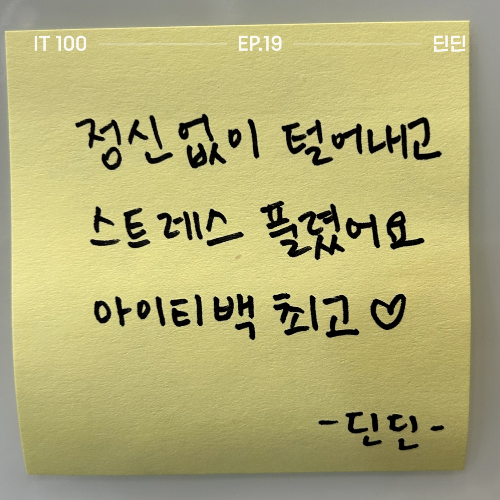 IT 100 EP.19 딘딘
정신없이 털어내고
스트레스 풀렸어요
아이티백 최고♡
-딘딘-